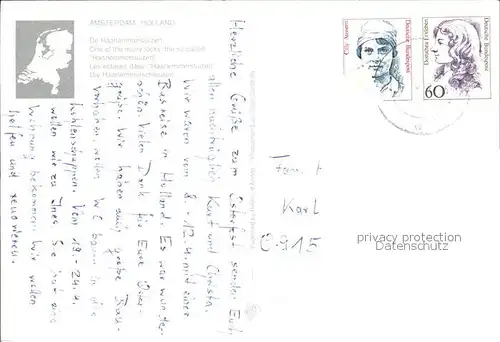 AMSTERDAM HOLLAND
De Haarlemmersluizen
One of the many locks: the so-called
"Haarlemmersluizen"
Les écluses dites: "Haarlemmersluizen"
Die Haarlemmerschleusen
Cilly Aussem
Deutsche Bundespost
Dorothea Erxleben
Deutsche Bundespost
60
Herzliche Grüße zum Osterfest senden Euch
allen nachträglich Kurt und Christa.
Wir waren vom 8.-12.4. mit einer
Busreise in Holland. Es war wunder-
schön. Vielen Dank für Eure Oster-
grüße. Wir haben auch große Bau-
vorhaben, wollen WC bauen in die
Vom 19.-24.4.
wollen wir zu Ines. Sie hat eine
Wohnung bekommen. Wir wollen
helfen und renovieren.
Fam.
Karl
O-915
privacy protection
Datenschutz